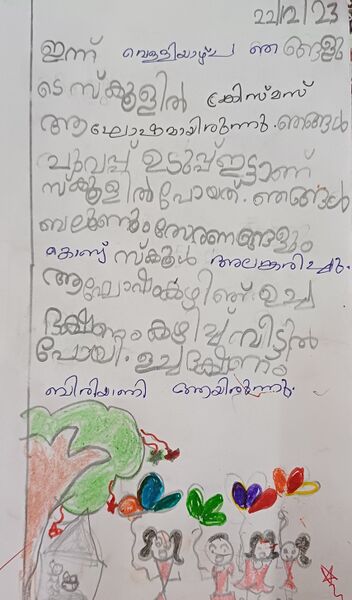 22/12/23
ഇന്ന് വെള്ളിയാഴ്ച ഞങ്ങളു
ടെ സ്കൂളിൽ ക്രിസ്മസ്
ആഘോഷമായിരുന്നു. ഞങ്ങൾ
ചുവപ്പ് ഉടുപ്പ് ഇട്ടാണ്
സ്കൂളിൽ പോയത്. ഞങ്ങൾ
ബലൂണും തോരണങ്ങളും
കൊണ്ട് സ്കൂൾ അലങ്കരിച്ചു.
ആഘോഷം കഴിഞ്ഞ് ഉച്ച
ഭക്ഷണം കഴിച്ച് വീട്ടിൽ
പോയി. ഉച്ച ഭക്ഷണം
ബിരിയാണി ആയിരുന്നു.